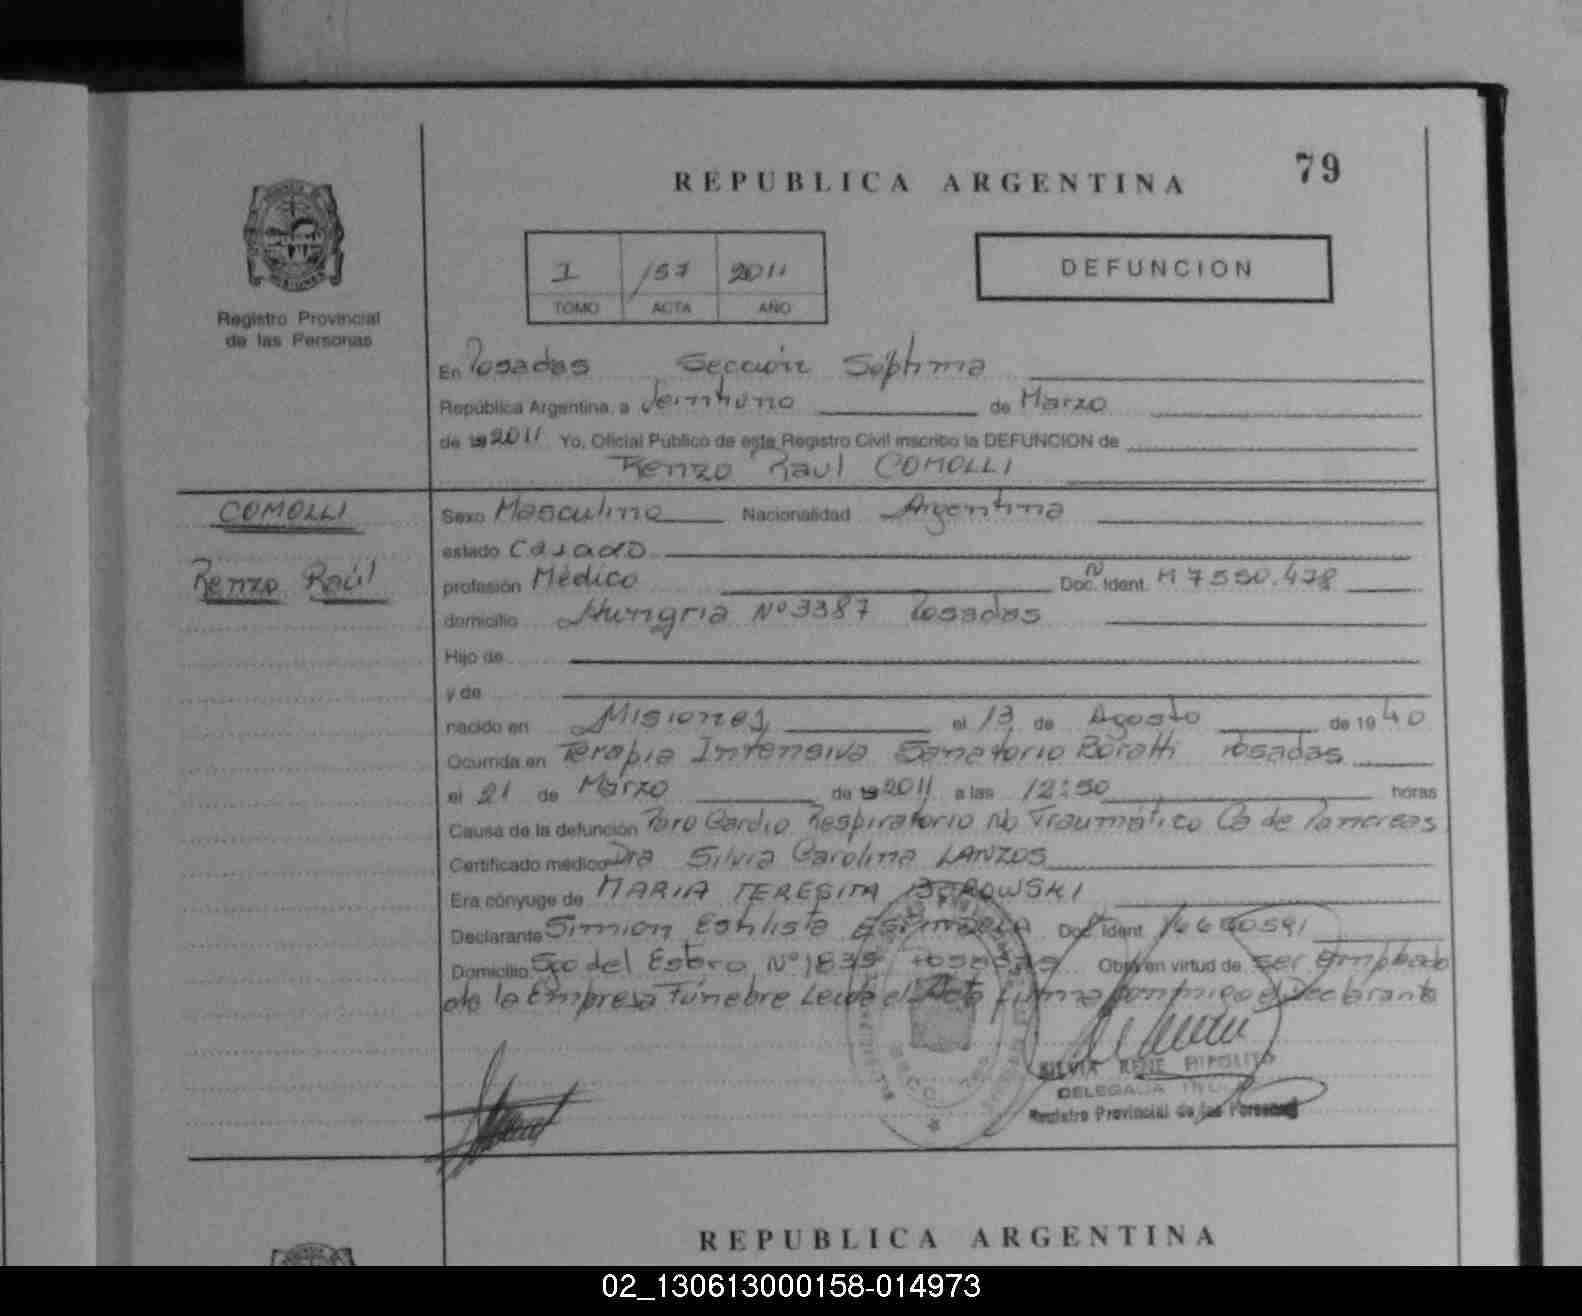 79
REPUBLICA ARGENTINA
DEFUNCION
I 157 2011
TOMO ACTA AÑO
Registro Provincial
de las Personas
En Posadas Sección Séptima
República Argentina, a Veintiuno de Marzo
de 19 2011 Yo, Oficial Público de este Registro Civil inscribo la DEFUNCION de
Renzo Raul COMOLLI
COMOLLI
Renzo Raúl
Sexo Masculino Nacionalidad Argentina
estado Casado
profesión Médico Doc. Ident. M 7550.478
domicilio Hungria Nº 3387 Posadas
Hijo de
y de
nacido en Misiones el 13 de Agosto de 1940
Ocurrida en Terapia Intensiva Sanatorio Boratti Posadas
el 21 de Marzo de 19 2011 a las 12:50 horas
Causa de la defunción Paro Cardio Respiratorio No Traumático Ca de Pancreas
Certificado médico Dra Silvia Carolina LANZOS
Era cónyuge de MARIA TERESITA BOROWSKI
Declarante Simion Doc. Ident.
Domicilio Sgo del Estero Nº 1835 Posadas Obra en virtud de ser Empleado
de la Empresa Fúnebre Leida el Acta Firma conmigo el Declarante
SILVIA RENE HIPOLITO
DELEGADA
Registro Provincial de las Personas
REPUBLICA ARGENTINA
02_130613000158-014973